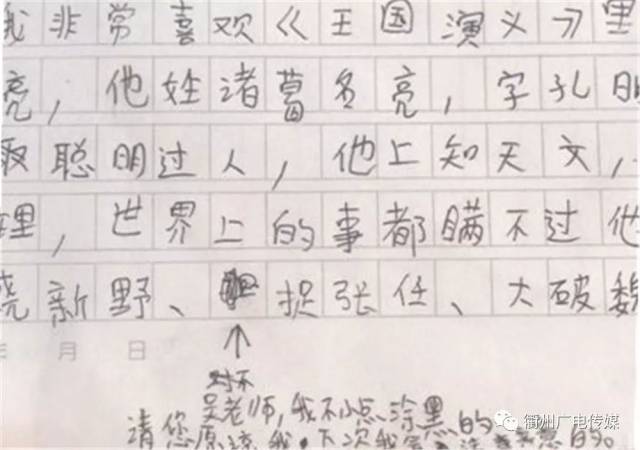 我非常喜欢《王国演义》里
亮，他姓诸葛名亮，字孔明
聪明过人，他上知天文，
理，世界上的事都瞒不过他
烧新野、捉张任、大破魏
年 月 日
对不
吴老师，我不小点涂黑的
请您原谅我。下次我会的。
衢州广电传媒